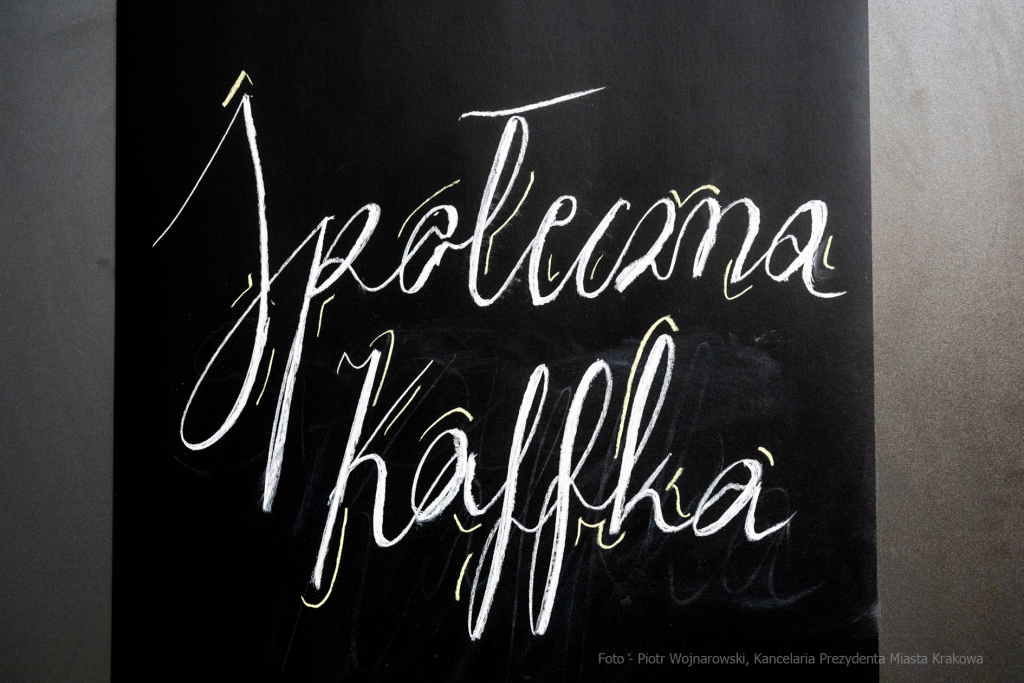 Społeczna
Kaffka
Foto - Piotr Wojnarowski, Kancelaria Prezydenta Miasta Krakowa